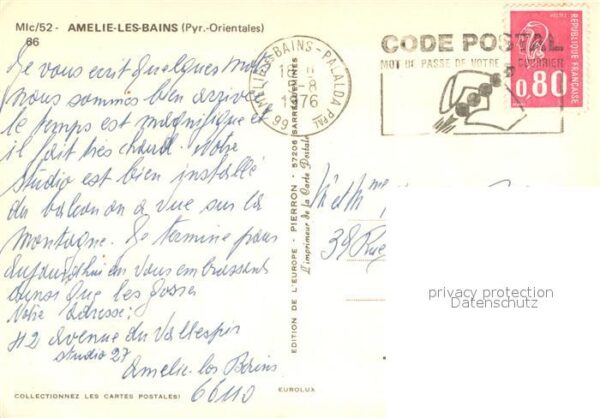 Mlc/52 - AMELIE-LES-BAINS (Pyr.-Orientales)
66
Je vous écrit quelques mots
nous sommes bien arrivé
le temps est magnifique et
il fait très chaud. Notre
studio est bien installé
du balcon on a vue sur la
montagne. Je termine pour
aujourd'hui en vous embrassant
ainsi que les gosses
Notre adresse:
42 avenue du Vallespir
studio 27
Amelie les Bains
66110
COLLECTIONNEZ LES CARTES POSTALES!
EDITION DE L'EUROPE - PIERRON - 57206 SARREGUEMINES
L'imprimeur de la Carte Postale
EUROLUX
AMELIE-LES-BAINS - PALALDA P.-OR.
1976
66
CODE POSTAL
MOT DE PASSE DE VOTRE COURRIER
0,80
REPUBLIQUE FRANCAISE
M et Mme
38 Rue
privacy protection
Datenschutz